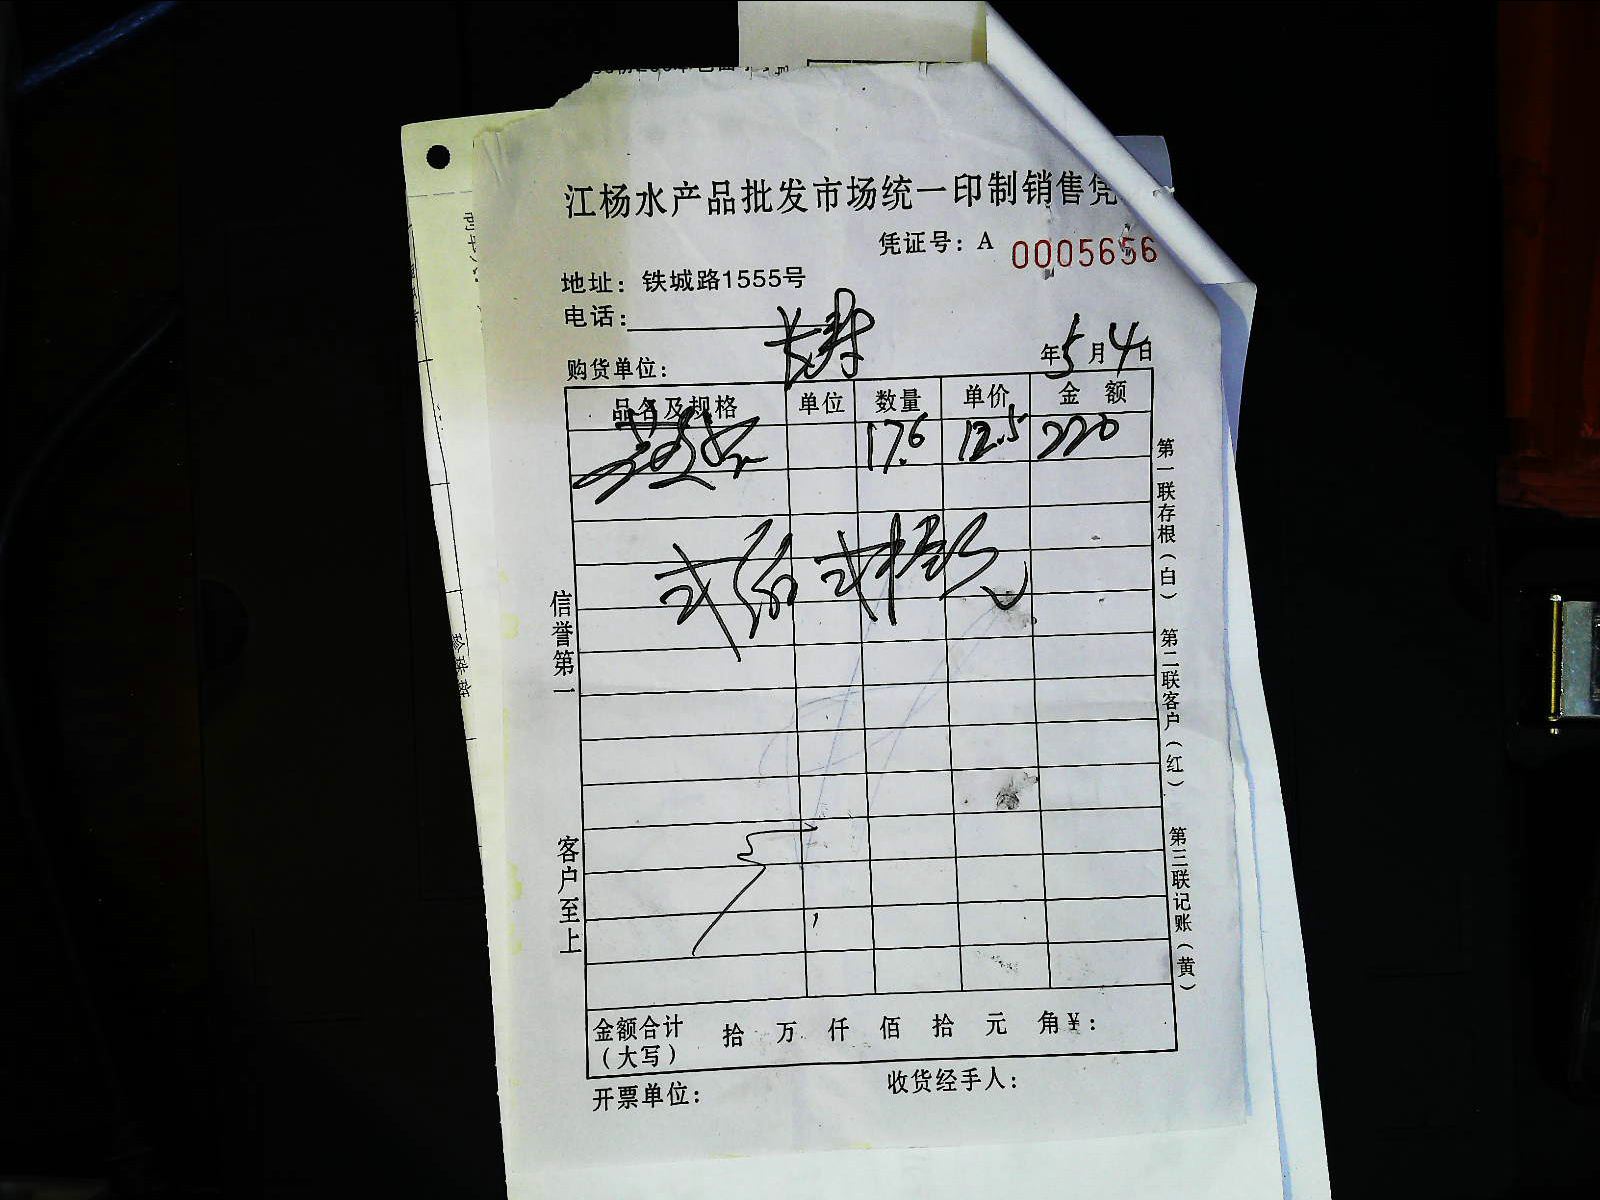 江杨水产品批发市场统一印制销售凭
凭证号：A 0005656
地址：铁城路1555号
电话：
购货单位：长寿 年5月4日
品名及规格 单位 数量 单价 金额
17.6 12.5 220
弍佰弍拾元
信誉第一
客户至上
第一联存根（白）
第二联客户（红）
第三联记账（黄）
金额合计 拾 万 仟 佰 拾 元 角 ¥：
（大写）
开票单位： 收货经手人：